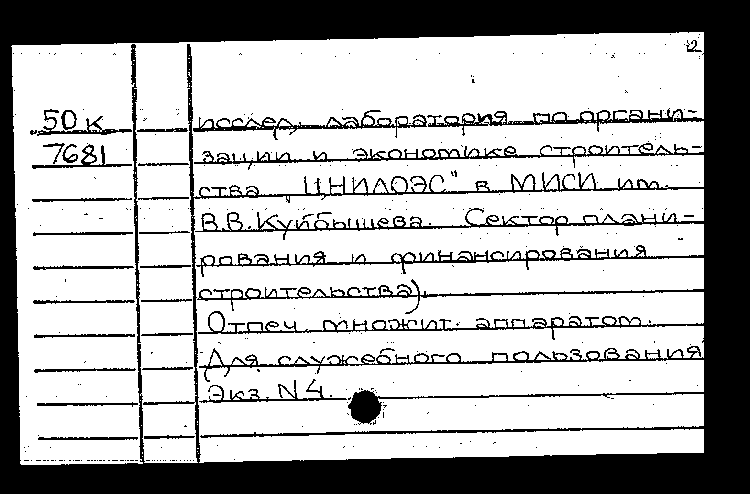 2
50к исслед. лаборатория по органи-
7681 зации и экономике строитель-
ства „ЦНИЛОЭС" в МИСИ им.
В.В.Куйбышева. Сектор плани-
рования и финансирования
строительства).
Отпеч множит. аппаратом.
Для служебного пользования
Экз. N 4.